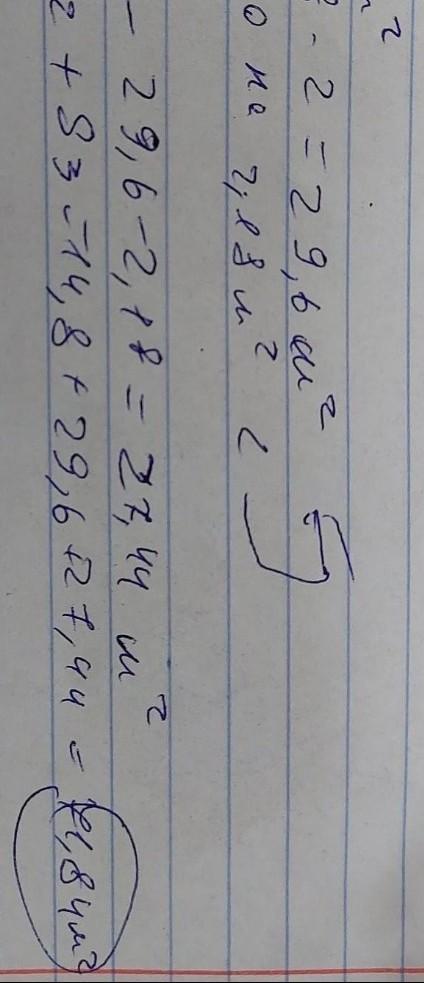 м²
· 2 = 29,6 м²
о на 2,18 м² <
- 29,6 - 2,18 = 27,44 м²
2 + S3 = 14,8 + 29,6 + 27,44 = 71,84 м²